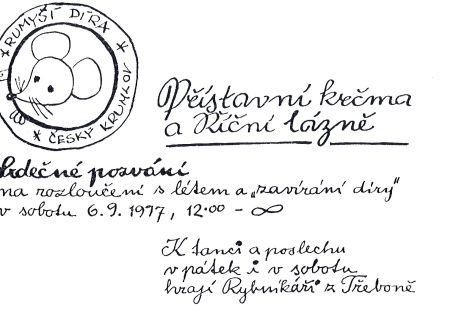 KRUMYŠÍ DÍRA
* ČESKÝ KRUMLOV *
Přístavní krčma
a Říční lázně
Srdečné pozvání
na rozloučení s létem a „zavírání díry"
v sobotu 6.9.1997, 12.00 - ∞
K tanci a poslechu
v pátek i v sobotu
hrají Rybníkáři z Třeboně